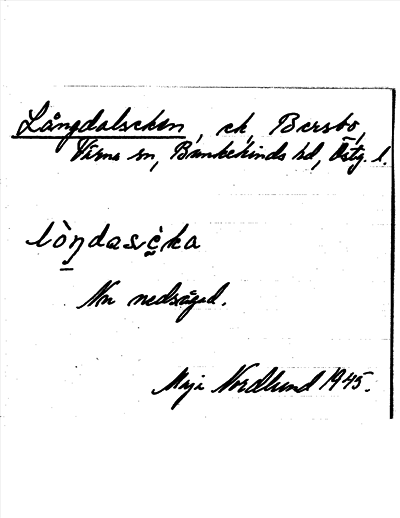 Långdalseken, ek, Bersbo,
Värna sn, Bankekinds hd, Östg. l.
lòŋdasèka
Nu nedsågad.
Maja Nordlund 1945.